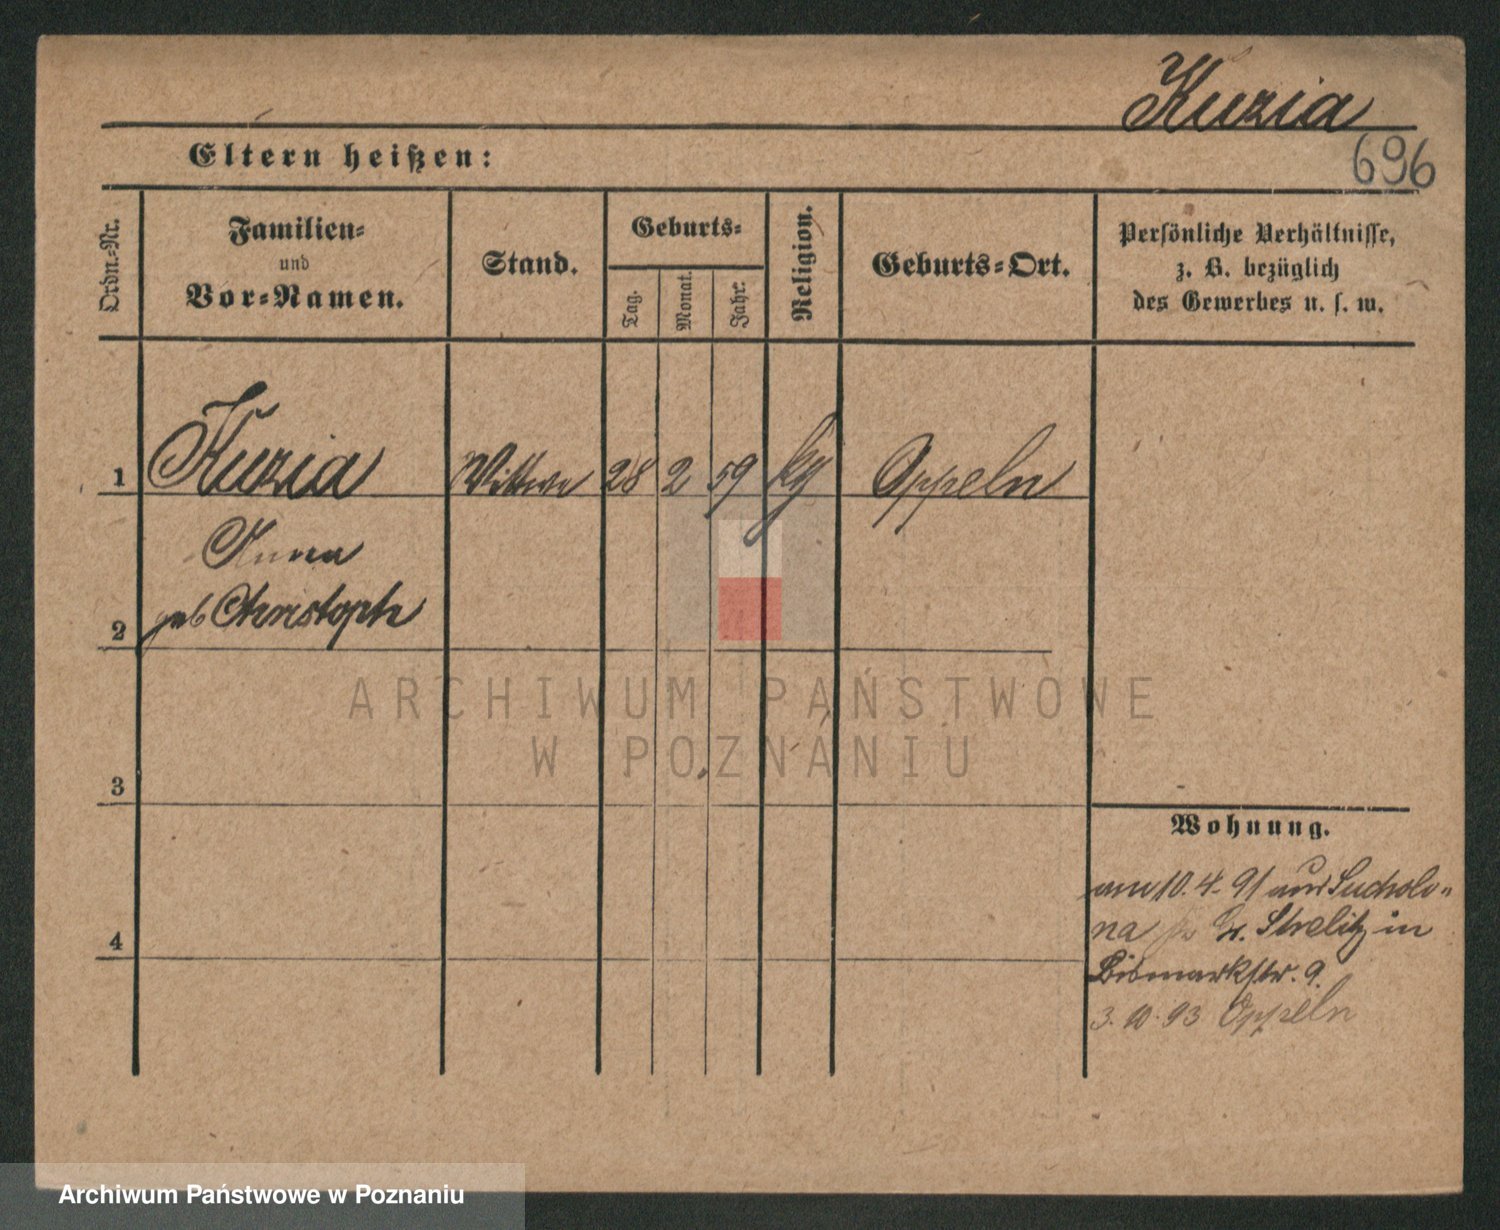 Kuzia
Eltern heißen:
696
Ordn.-Nr.
Familien-
und
Vor-Namen.
Stand.
Geburts-
Tag.
Monat.
Jahr.
Religion.
Geburts-Ort.
Persönliche Verhältnisse,
z. B. bezüglich
des Gewerbes u. s. w.
1 Kuzia Wittwe 28 2 59 kg Oppeln
Anna
2 geb Christoph
ARCHIWUM PAŃSTWOWE
W POZNANIU
3
Wohnung.
am 10.4.91 aus Sucholo-
na Gr. Strelitz in
4
Bismarkstr. 9.
3.10.93 Oppeln
Archiwum Państwowe w Poznaniu